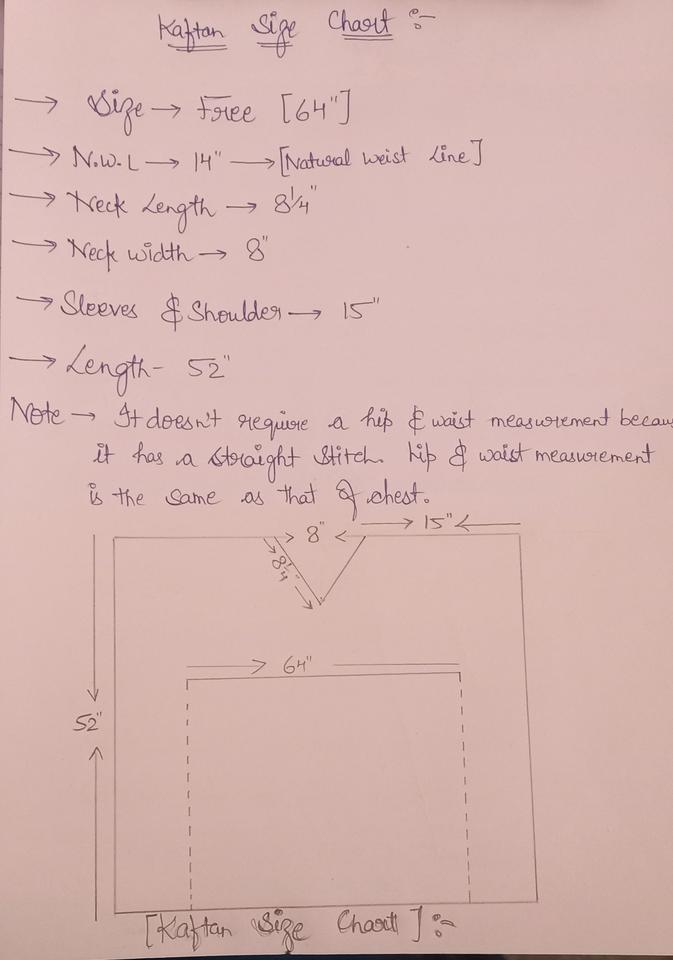 Kaftan Size Chart :-
→ Size → Free [64"]
→ N.W.L → 14" → [Natural Weist Line]
→ Neck Length → 8 1/4"
→ Neck width → 8"
→ Sleeves & Shoulder → 15"
→ Length - 52"
Note → It doesn't require a hip & waist measurement becau
it has a straight stitch. hip & waist measurement
is the same as that of chest.
→ 8" ←
→ 15" ←
8 1/4"
→ 64"
52"
[Kaftan Size Chart] :-